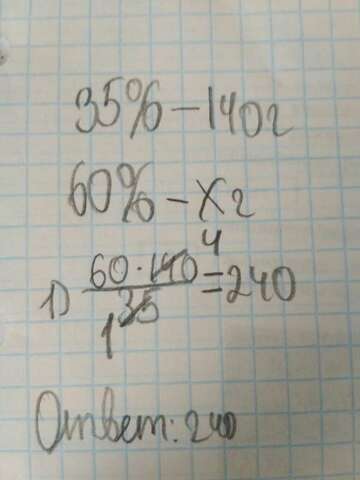 35% – 140г
60% – Xг
1) 60 · 140 4 / 35 1 = 240
Ответ: 240